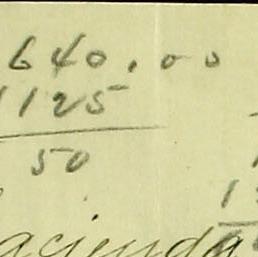 640.00
1125
50
1
acienda